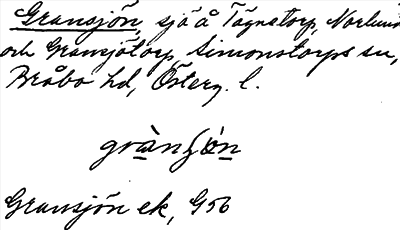 Gransjön, sjö å Tägnatorp, Norlund
och Gransjötorp, Simonstorps sn,
Bråbo hd, Österg. l.
grànʃön
Gransjön ek, G56